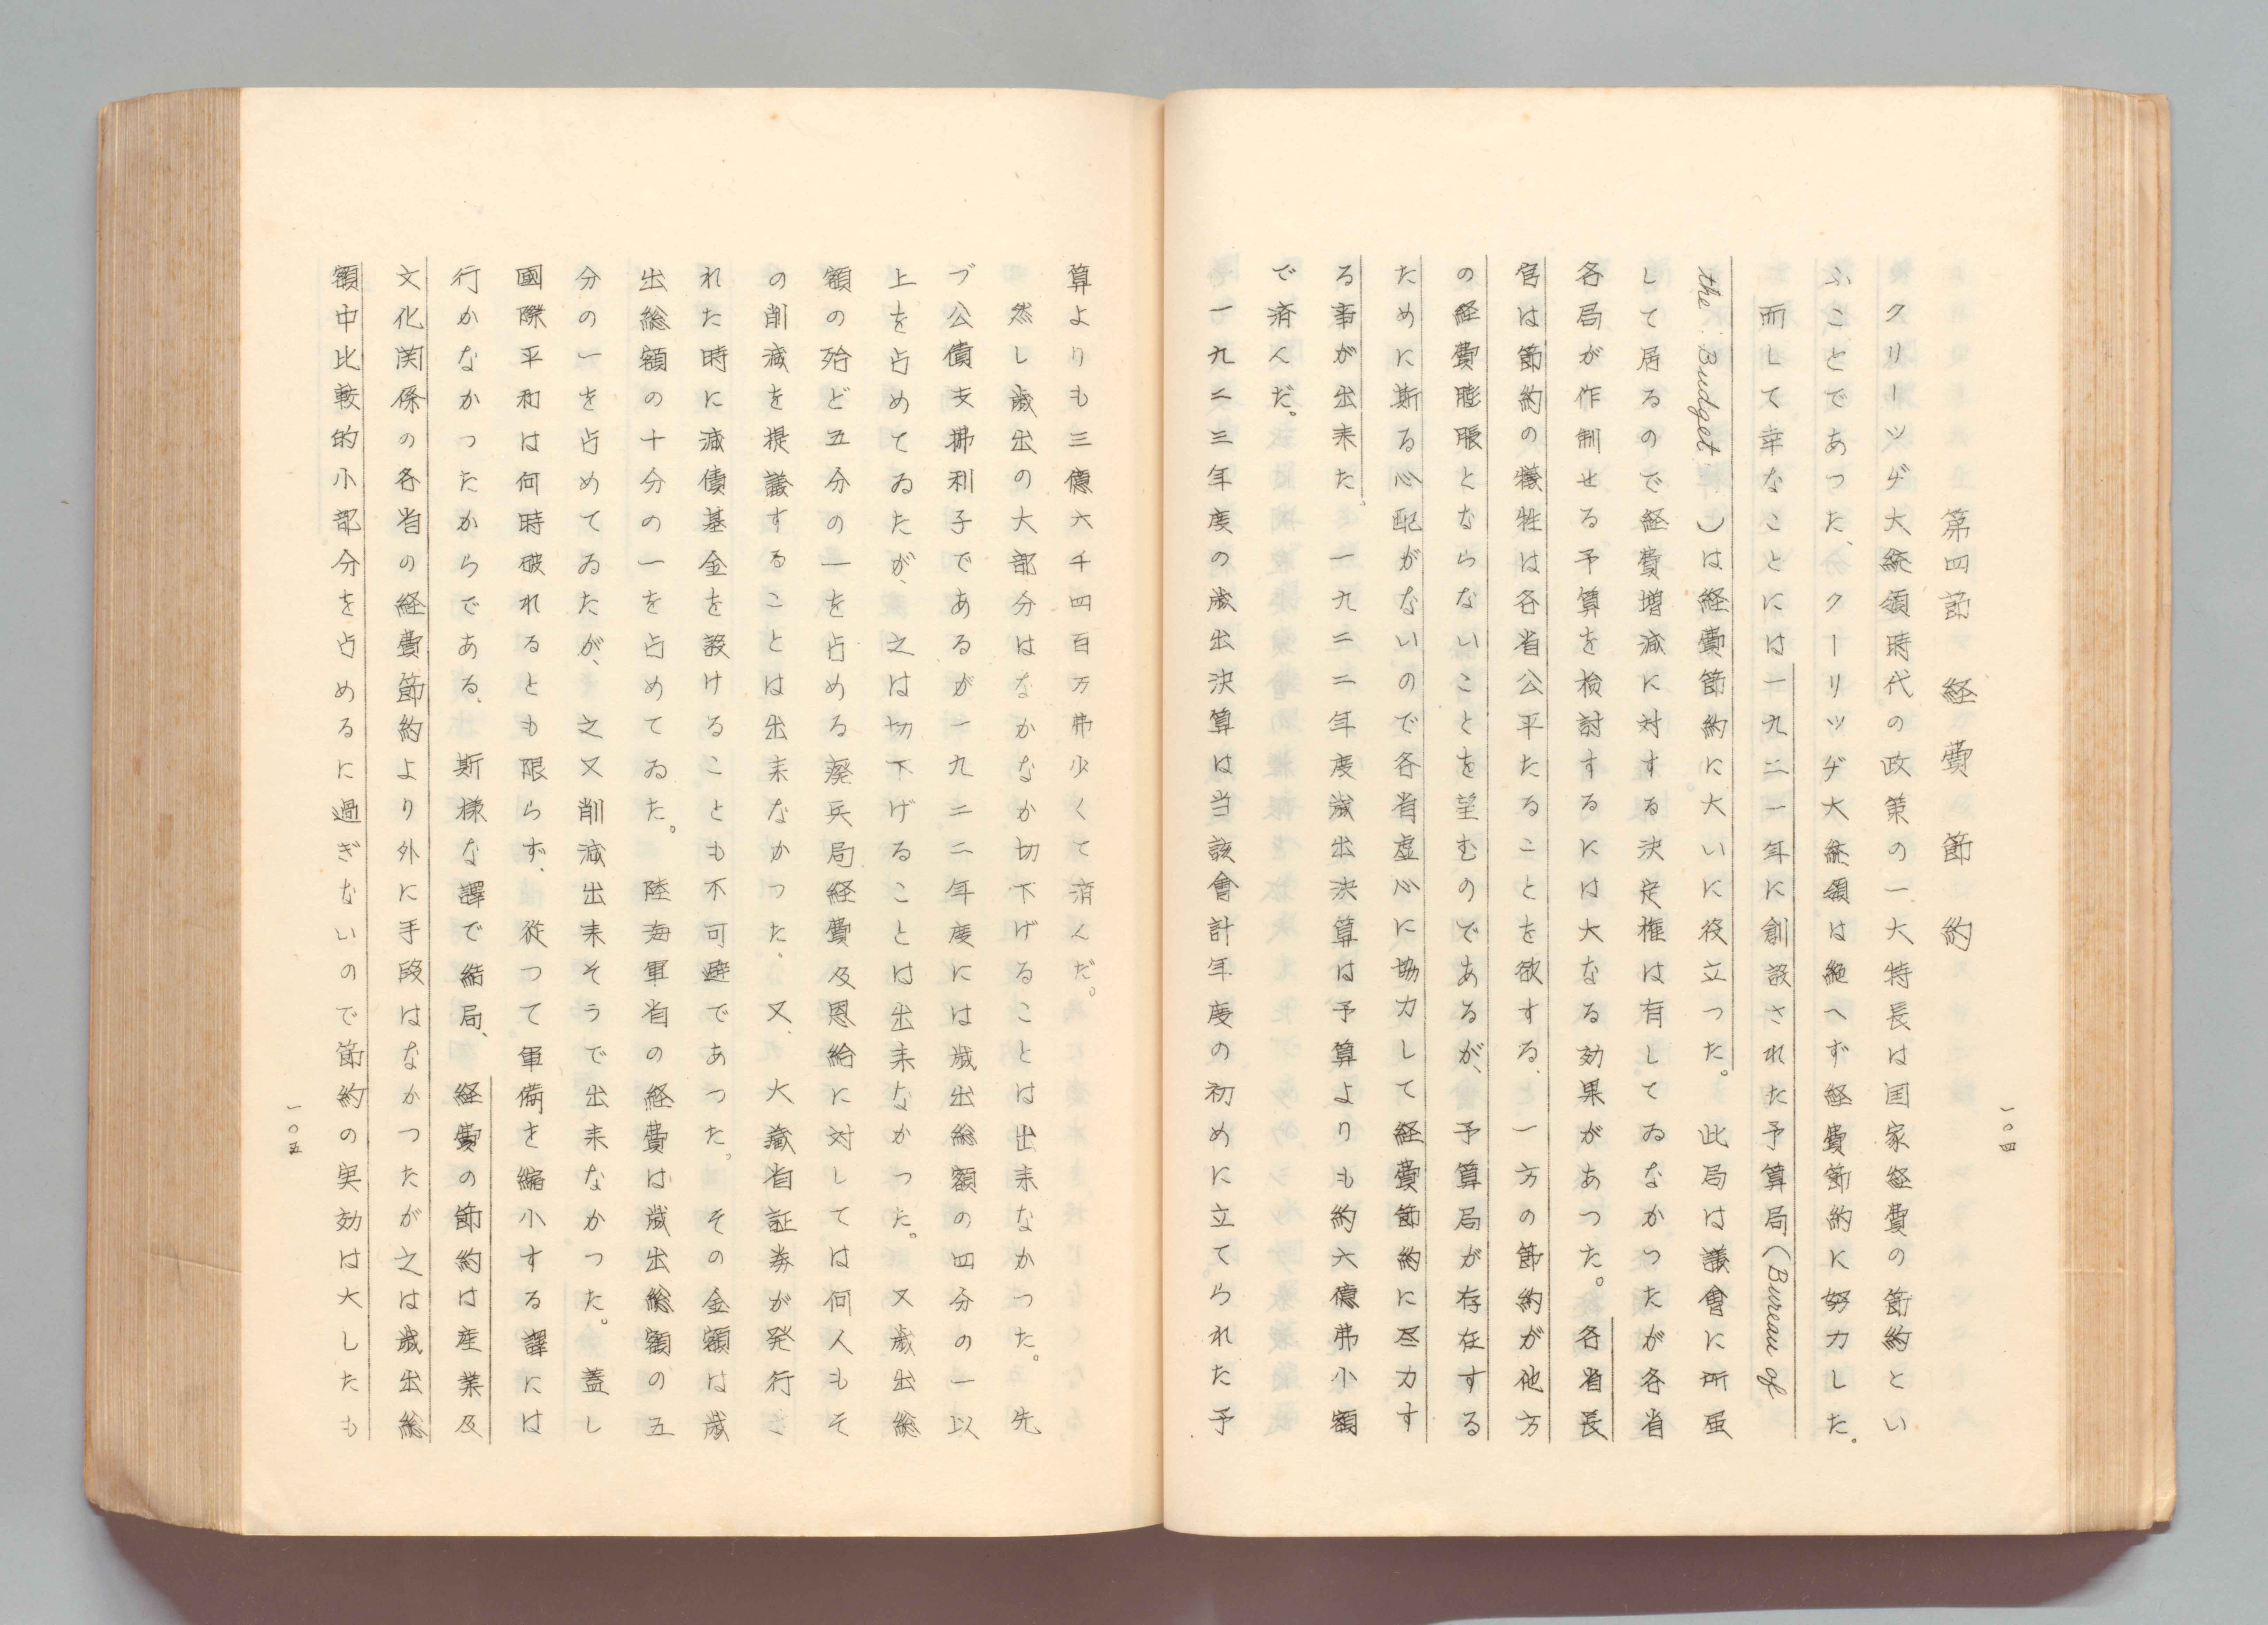 第四節 経費節約
クリーツヂ大統領時代の政策の一大特長は国家経費の節約とい
ふことであつた、クーリツヂ大統領は絶へず経費節約に努力した。
而して幸なことには一九二一年に創設された予算局（Bureau of
the Budget.）は経費節約に大いに役立つた。此局は議會に所虽
して居るので経費増減に対する決定権は有してゐなかつたが各省
各局が作制せる予算を検討するには大なる効果があつた。各省長
官は節約の犠牲は各省公平たることを欲する、一方の節約が他方
の経費膨脹とならないことを望むのであるが、予算局が存在する
ために斯る心配がないので各省虚心に協力して経費節約に尽力す
る事が出来た。一九二二年度歳出決算は予算よりも約六億弗小額
で済んだ。
一九二三年度の歳出決算は当該會計年度の初めに立てられた予
一〇四
算よりも三億六千四百万弗少くて済んだ。
然し歳出の大部分はなかなか切下げることは出来なかつた。先
づ公債支拂利子であるが一九二二年度には歳出総額の四分の一以
上を占めてゐたが、之は切下げることは出来なかつた。又歳出総
額の殆ど五分の一を占める廃兵局経費及恩給に対しては何人もそ
の削減を提議することは出来なかつた。又、大蔵省証券が発行さ
れた時に減債基金を設けることも不可避であつた。その金額は歳
出総額の十分の一を占めてゐた。陸海軍省の経費は歳出総額の五
分の一を占めてゐたが、之又削減出来そうで出来なかつた。蓋し
國際平和は何時破れるとも限らず、従つて軍備を縮小する譯には
行かなかつたからである、斯様な譯で結局、経費の節約は産業及
文化関係の各省の経費節約より外に手段はなかつたが之は歳出総
額中比較的小部分を占めるに過ぎないので節約の実効は大したも
一〇五